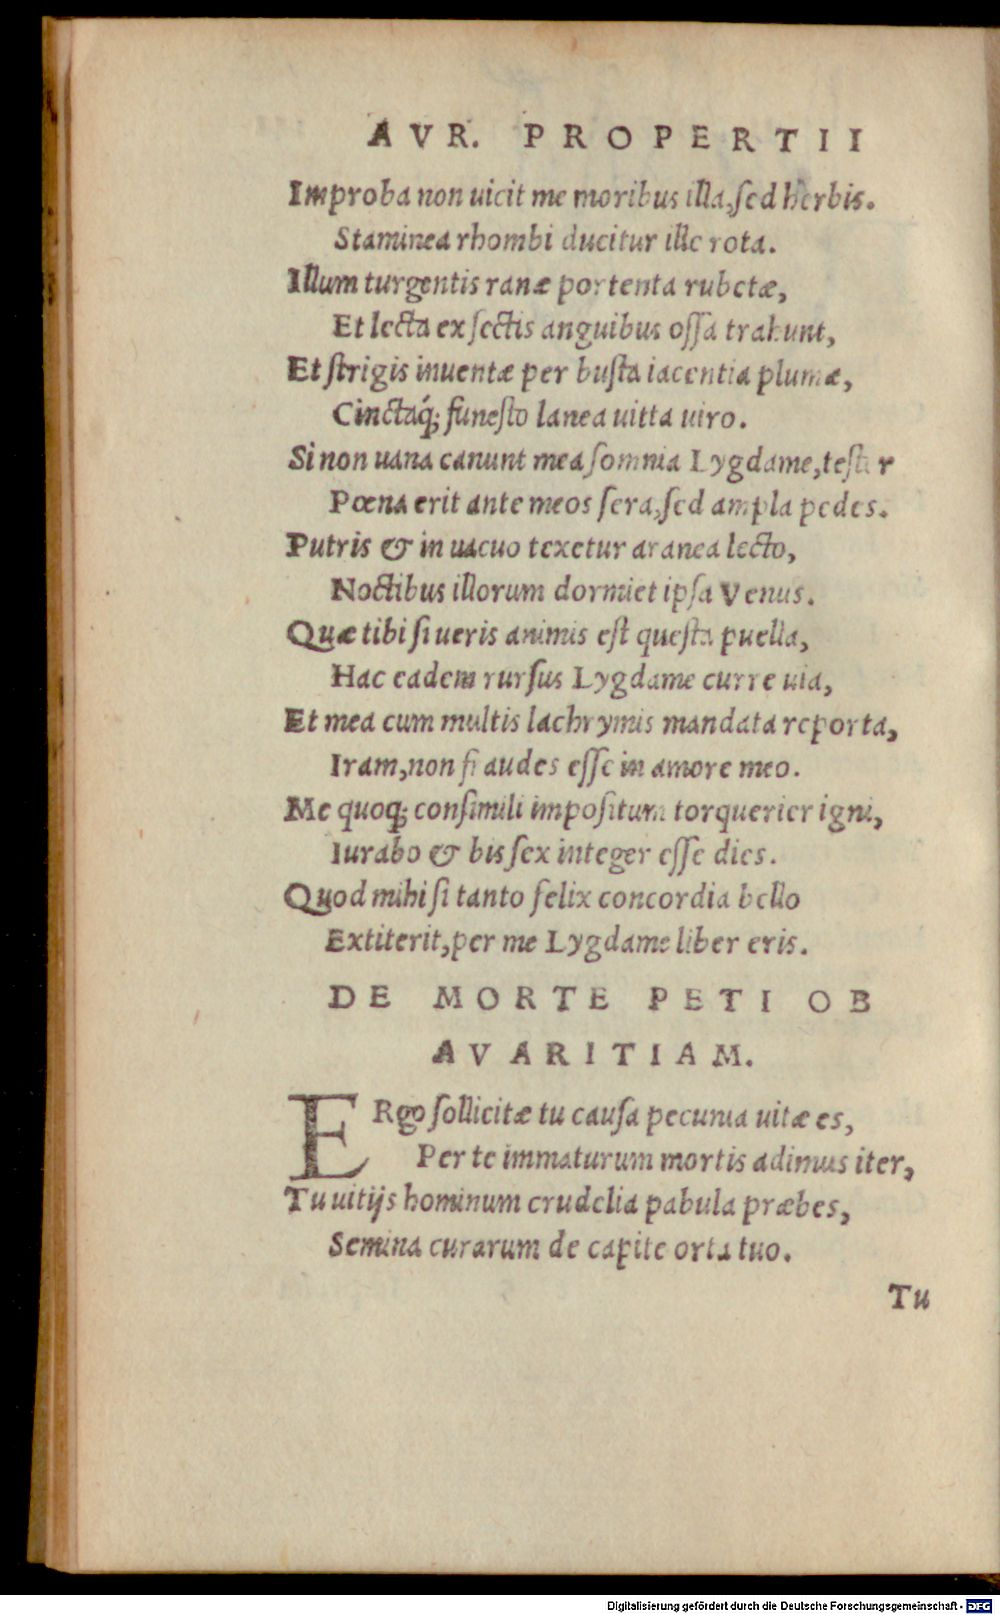 AVR. PROPERTII
Improba non uicit me moribus illa, sed herbis.
Staminea rhombi ducitur ille rota.
Illum turgentis ranæ portenta rubetæ,
Et lecta ex sectis anguibus ossa trahunt,
Et strigis inuentæ per busta iacentia plumæ,
Cinctaq́; funesto lanea uitta uiro.
Si non uana canunt mea somnia Lygdame, testor
Pœna erit ante meos sera, sed ampla pedes.
Putris & in uacuo texetur aranea lecto,
Noctibus illorum dormiet ipsa Venus.
Quæ tibi si ueris animis est questa puella,
Hac eadem rursus Lygdame curre uia,
Et mea cum multis lachrymis mandata reporta,
Iram, non fraudes esse in amore meo.
Me quoq; consimili impositum torquerier igni,
Iurabo & bis sex integer esse dies.
Quod mihi si tanto felix concordia bello
Extiterit, per me Lygdame liber eris.
DE MORTE PETI OB
AVARITIAM.
ERgo sollicitæ tu causa pecunia uitæ es,
Per te immaturum mortis adimus iter,
Tu uitijs hominum crudelia pabula præbes,
Semina curarum de capite orta tuo.
Tu
Digitalisierung gefördert durch die Deutsche Forschungsgemeinschaft - DFG